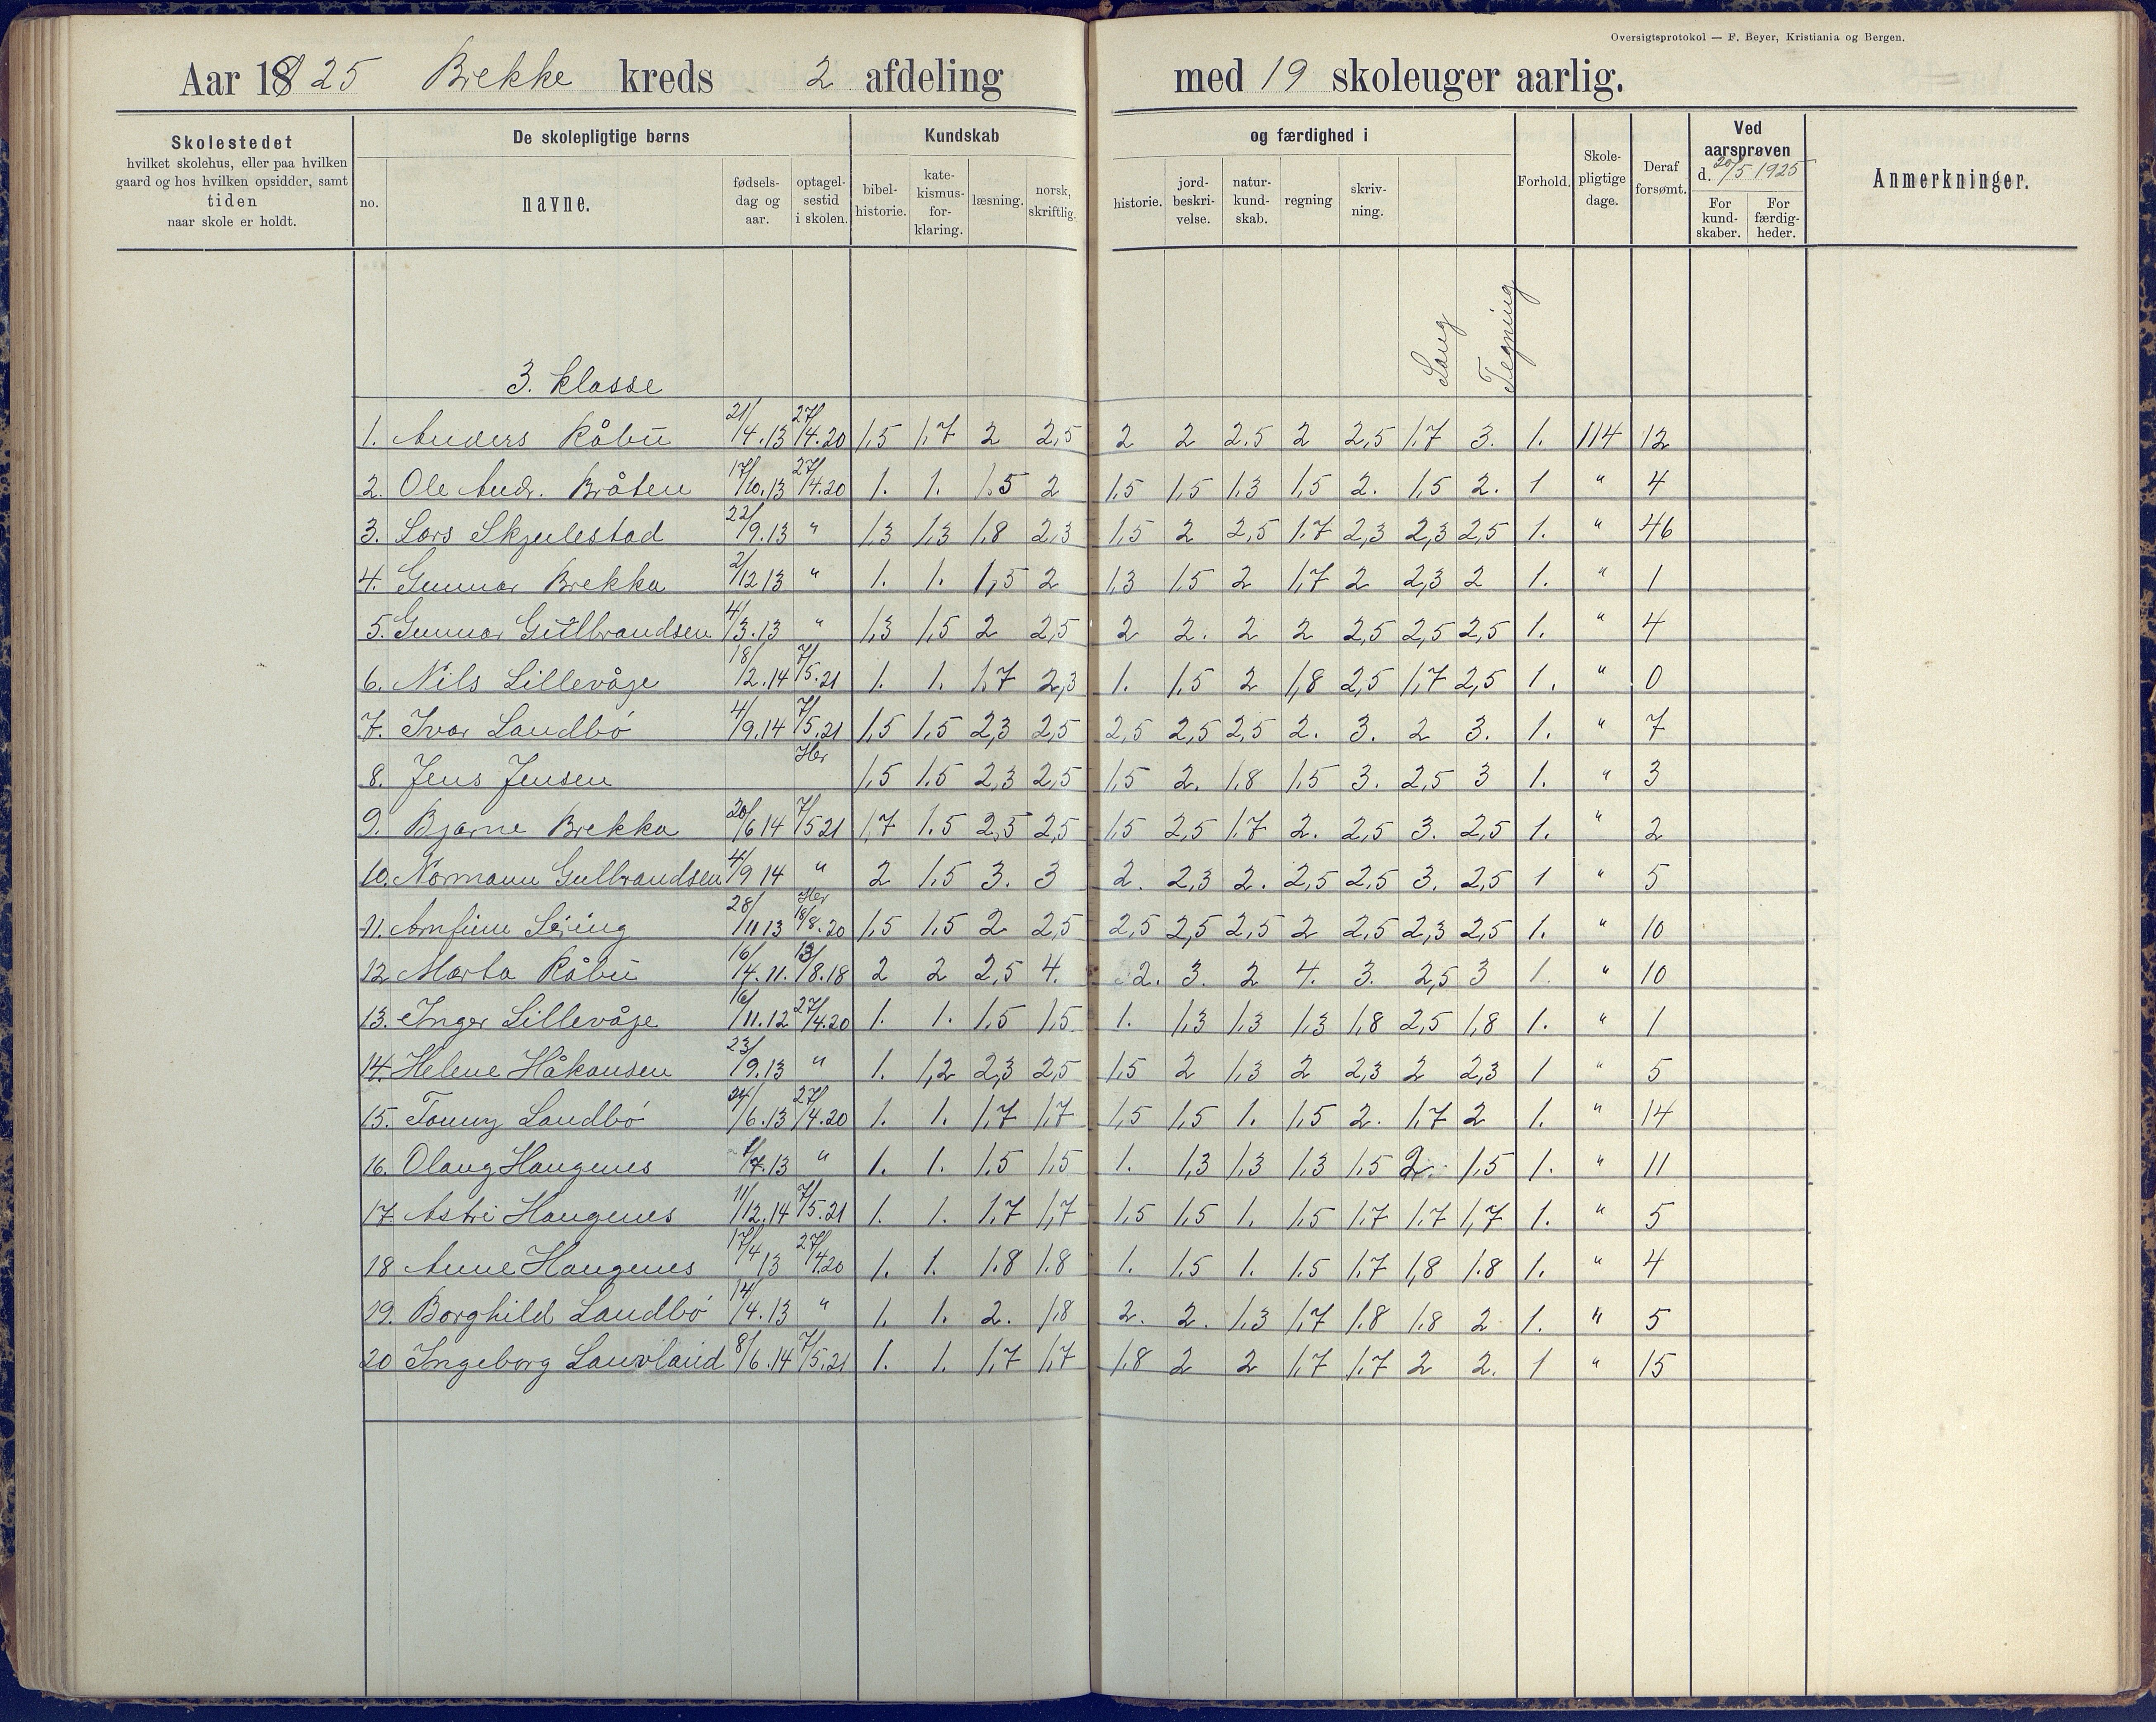 Oversigtsprotokol — F. Beyer, Kristiania og Bergen.
Aar 1925 Brekke kreds 2 afdeling med 19 skoleuger aarlig.
Skolestedet hvilket skolehus, eller paa hvilken gaard og hos hvilken opsidder, samt tiden naar skole er holdt.
De skolepligtige børns
no. navne. fødselsdag og aar. optagelsestid i skolen.
Kundskab og færdighed i
bibelhistorie. katekismusforklaring. læsning. norsk, skriftlig. historie. jordbeskrivelse. naturkundskab. regning skrivning.
Forhold. Skolepligtige dage. Deraf forsømt.
Ved aarsprøven d. 20/5 1925
For kundskaber. For færdigheder.
Anmerkninger.
Sang Tegning
3. klasse
1. Anders Råbu 21/4.13 27/4.20 1,5 1,7 2 2,5 2 2 2.5 2 2,5 1.7 3. 1. 114 12
2. Ole Andr. Bråten 17/10.13 27/4.20 1. 1. 1.5 2 1,5 1,5 1.3 1,5 2. 1,5 2. 1 " 4
3. Lars Skjulestad 22/9.13 " 1,3 1,3 1.8 2,3 1,5 2 2,5 1.7 2,3 2,3 2,5 1. " 46
4. Gunnar Brekka 2/12 13 " 1. 1. 1,5 2 1.3 1.5 2 1,7 2 2,3 2 1. " 1
5. Gunnar Gullbrandsen 4/3.13 " 1,3 1,5 2 2,5 2 2. 2 2 2,5 2,5 2,5 1. " 4
6. Nils Lillevåje 18/12.14 7/5.21 1. 1. 1.7 2,3 1. 1.5 2 1,8 2,5 1,7 2,5 1. " 0
7. Ivar Landbö 4/9.14 7/5.21 1,5 1.5 2,3 2,5 2,5 2,5 2,5 2. 3. 2 3. 1. " 7
8. Jens Jensen Her 1,5 1.5 2,3 2,5 1,5 2. 1.8 1.5 3. 2,5 3 1. " 3
9. Bjarne Brekka 20/6 14 7/5 21 1,7 1.5 2,5 2,5 1.5 2,5 1.7 2. 2,5 3. 2,5 1. " 2
10. Normann Gullbrandsen 4/9 14 " 2 1.5 3. 3 2. 2,3 2. 2,5 2.5 3. 2,5 1 " 5
11. Arnfinn 28/11 13 Her 18/8.20 1,5 1.5 2 2,5 2,5 2,5 2,5 2 2,5 2,3 2,5 1. " 10
12 Marta Råbu 16/4.11. 13/8.18 2 2 2,5 4. 2. 3. 2 4. 3. 2,5 3 1. " 10
13. Inger Lillevåje 16/11.12 27/4.20 1. 1. 1.5 1,5 1. 1,3 1,3 1,3 1,8 2,5 1,8 1. " 1
14. Helene Håkansen 23/9.13 " 1. 1,2 2,3 2,5 1,5 2 1,3 2 2,3 2 2,3 1 " 5
15. Tonny Landbö 24/6.13 27/4.20 1. 1. 1.7 1,7 1,5 1.5 1. 1.5 2. 1.7 2 1. " 14
16. Olaug Haugenes 7.13 " 1. 1. 1.5 1,5 1. 1,3 1,3 1,3 1.5 2. 1.5 1. " 11
17. Astri Haugenes 11/12.14 7/5.21 1. 1. 1.7 1,7 1.5 1.5 1. 1.5 1.7 1.7 1,7 1. " 5
18 Anne Haugenes 17/4 13 27/4.20 1. 1. 1.8 1.8 1. 1.5 1. 1.5 1.7 1,8 1.8 1. " 4
19. Borghild Landbö 14/4.13 " 1. 1. 2. 1,8 2. 2. 1,3 1,7 1.8 1.8 2 1. " 5
20 Ingeborg Lauvland 8/6.14 7/5.21 1. 1. 1,7 1,7 1.8 2 2 1,7 1,7 2 2. 1 " 15